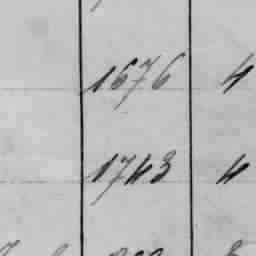 1676 4
1743 4